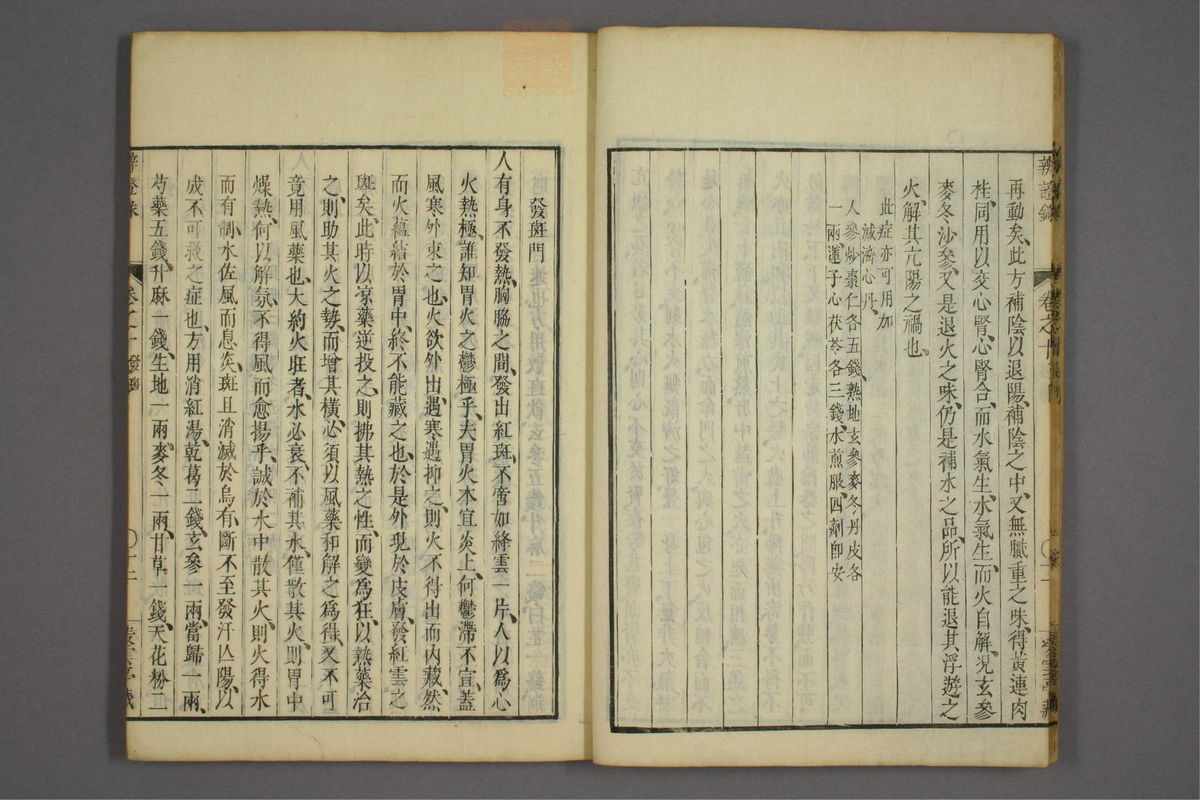 再動矣此方補陰以退陽補陰之中又無膩重之味得黃連肉
桂同用以交心腎心腎合而水氣生水氣生而火自解况玄參
麥冬沙參又是退火之味仍是補水之品所以能退其浮遊之
火解其亢陽之禍也
此症亦可用加
減濟心丹
人參炒棗仁各五錢熟地玄參麥冬丹皮各
一兩蓮子心茯苓各三錢水煎服四劑即安
發斑門
人有身不發熱胸脇之間發出紅斑不啻如絳雲一片人以爲心
火熱極誰知胃火之鬱極乎夫胃火本宜炎上何鬱滯不宣蓋
風寒外束之也火欲外出遇寒遇抑之則火不得出而內藏然
而火蘊結於胃中終不能藏之也於是外現於皮膚發紅雲之
斑矣此時以凉藥逆投之則拂其熱之性而變爲狂以熱藥治
之則助其火之勢而增其橫必須以風藥和解之爲得又不可
竟用風藥也大約火旺者水必衰不補其水僅散其火則胃中
燥熱何以解氛不得風而愈揚乎誠於水中散其火則火得水
而有制水佐風而息炎斑且消滅於烏有斷不至發汗亡陽以
成不可救之症也方用消紅湯乾葛二錢玄參一兩當歸一兩
芍藥五錢升麻一錢生地一兩麥冬一兩甘草一錢天花粉二
辨證錄